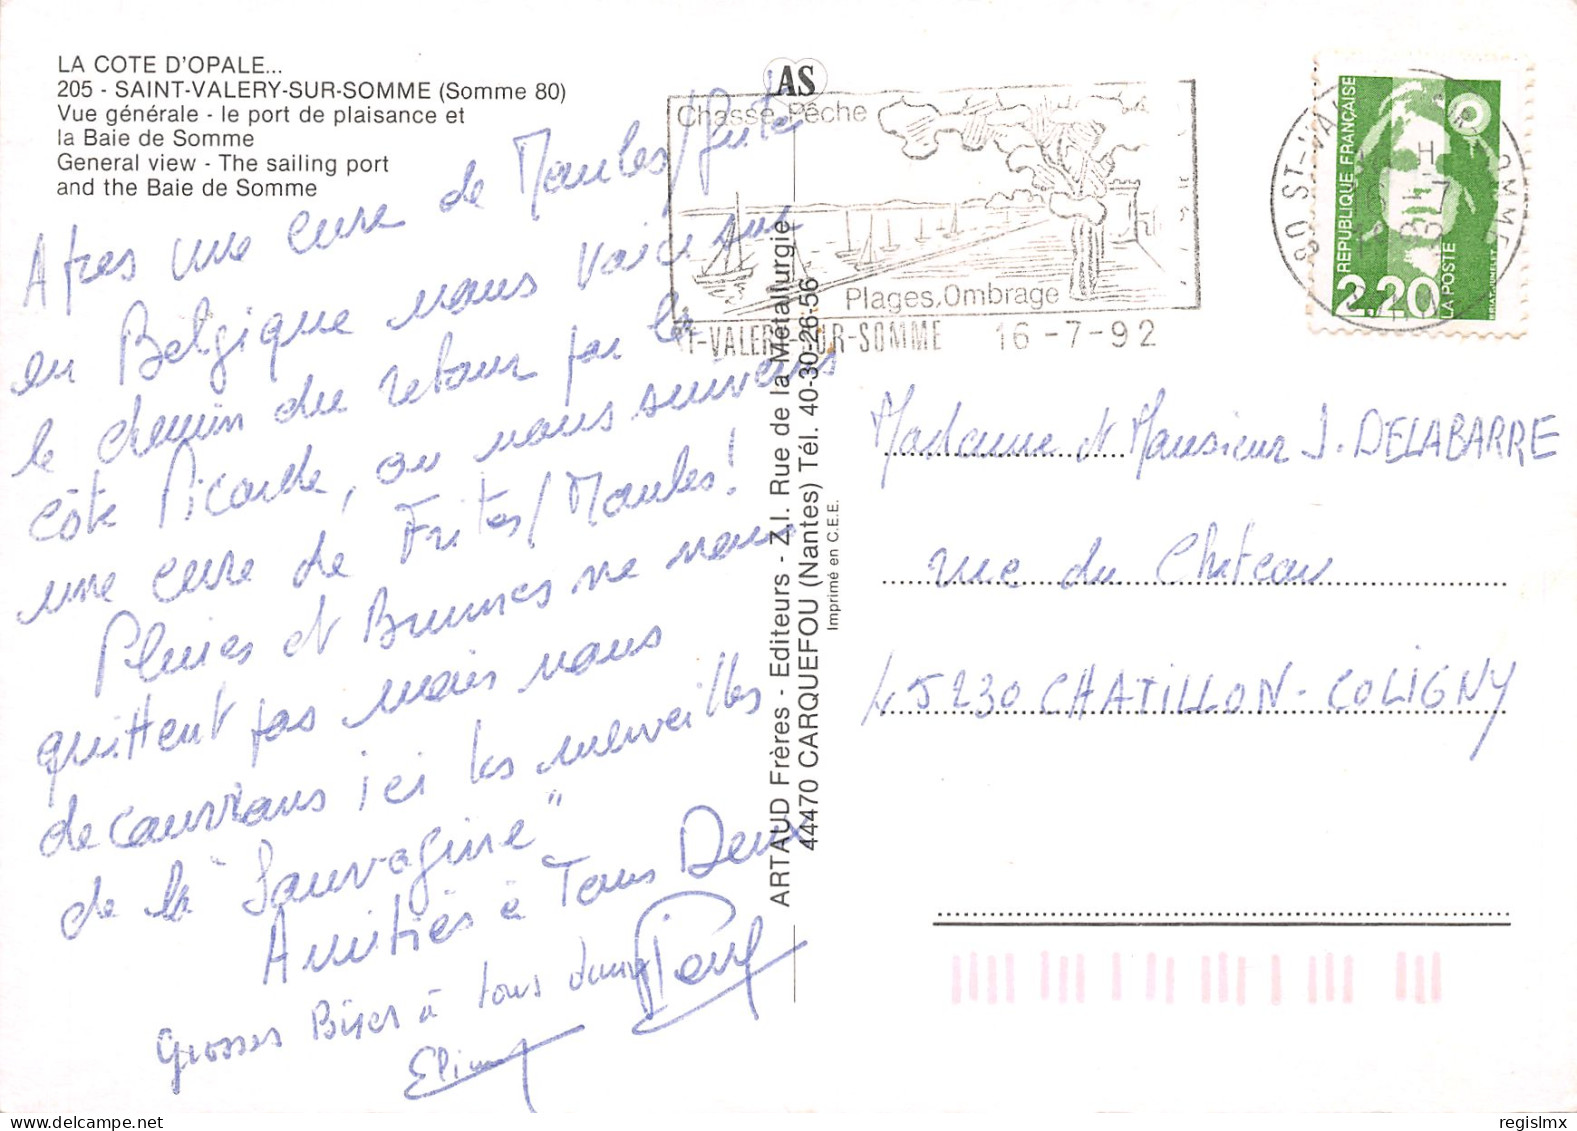 LA COTE D'OPALE...
205 - SAINT-VALERY-SUR-SOMME (Somme 80)
Vue générale - le port de plaisance et
la Baie de Somme
General view - The sailing port
and the Baie de Somme
AS
Chasse, Pêche
Plages, Ombrage
ST-VALERY-SUR-SOMME 16-7-92
80 ST-VA
REPUBLIQUE FRANÇAISE
2,20
LA POSTE
Apres une cure de Moules/frites
en Belgique nous voici sur
le chemin du retour par la
côte Picarde, ou nous suivons
une cure de Frites/Moules!
Pluies et Brumes ne nous
quittent pas mais nous
decouvrons ici les merveilles
de la "Sauvagine"
Amitiés à Tous Deux
Grosses Bises à tous deux
ARTAUD Frères - Editeurs - Z.I. Rue de la Métallurgie
44470 CARQUEFOU (Nantes) Tél. 40-30-26-56
Imprimé en C.E.E.
Madame et Monsieur J. DELABARRE
rue du Chateau
45230 CHATILLON-COLIGNY
regislmx